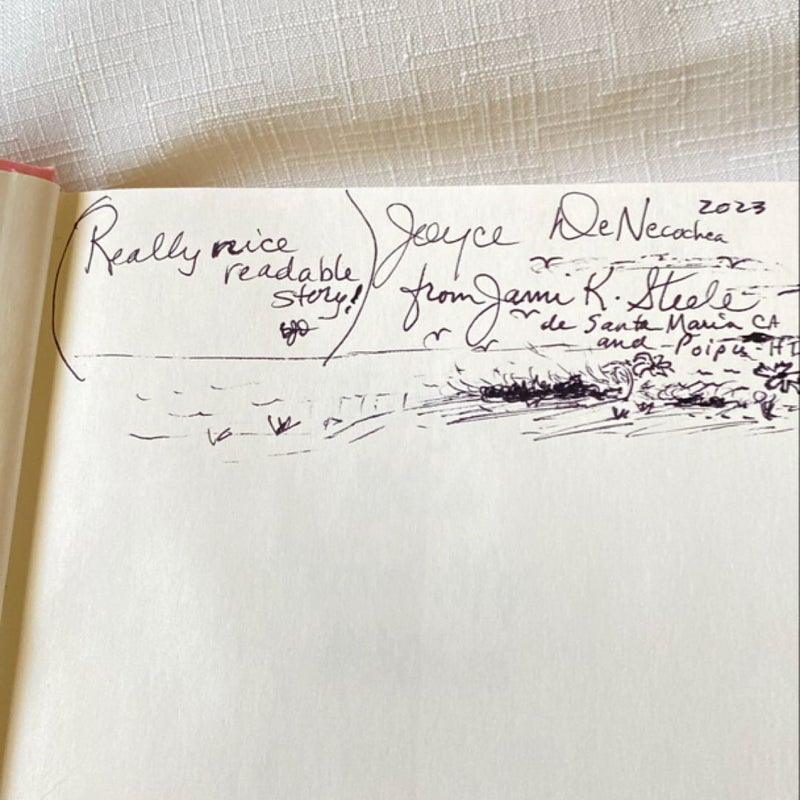 (Really nice
readable
story!)
Joyce DeNecochea 2023
from Jami K. Steele
de Santa Maria CA
and Poipu-HI